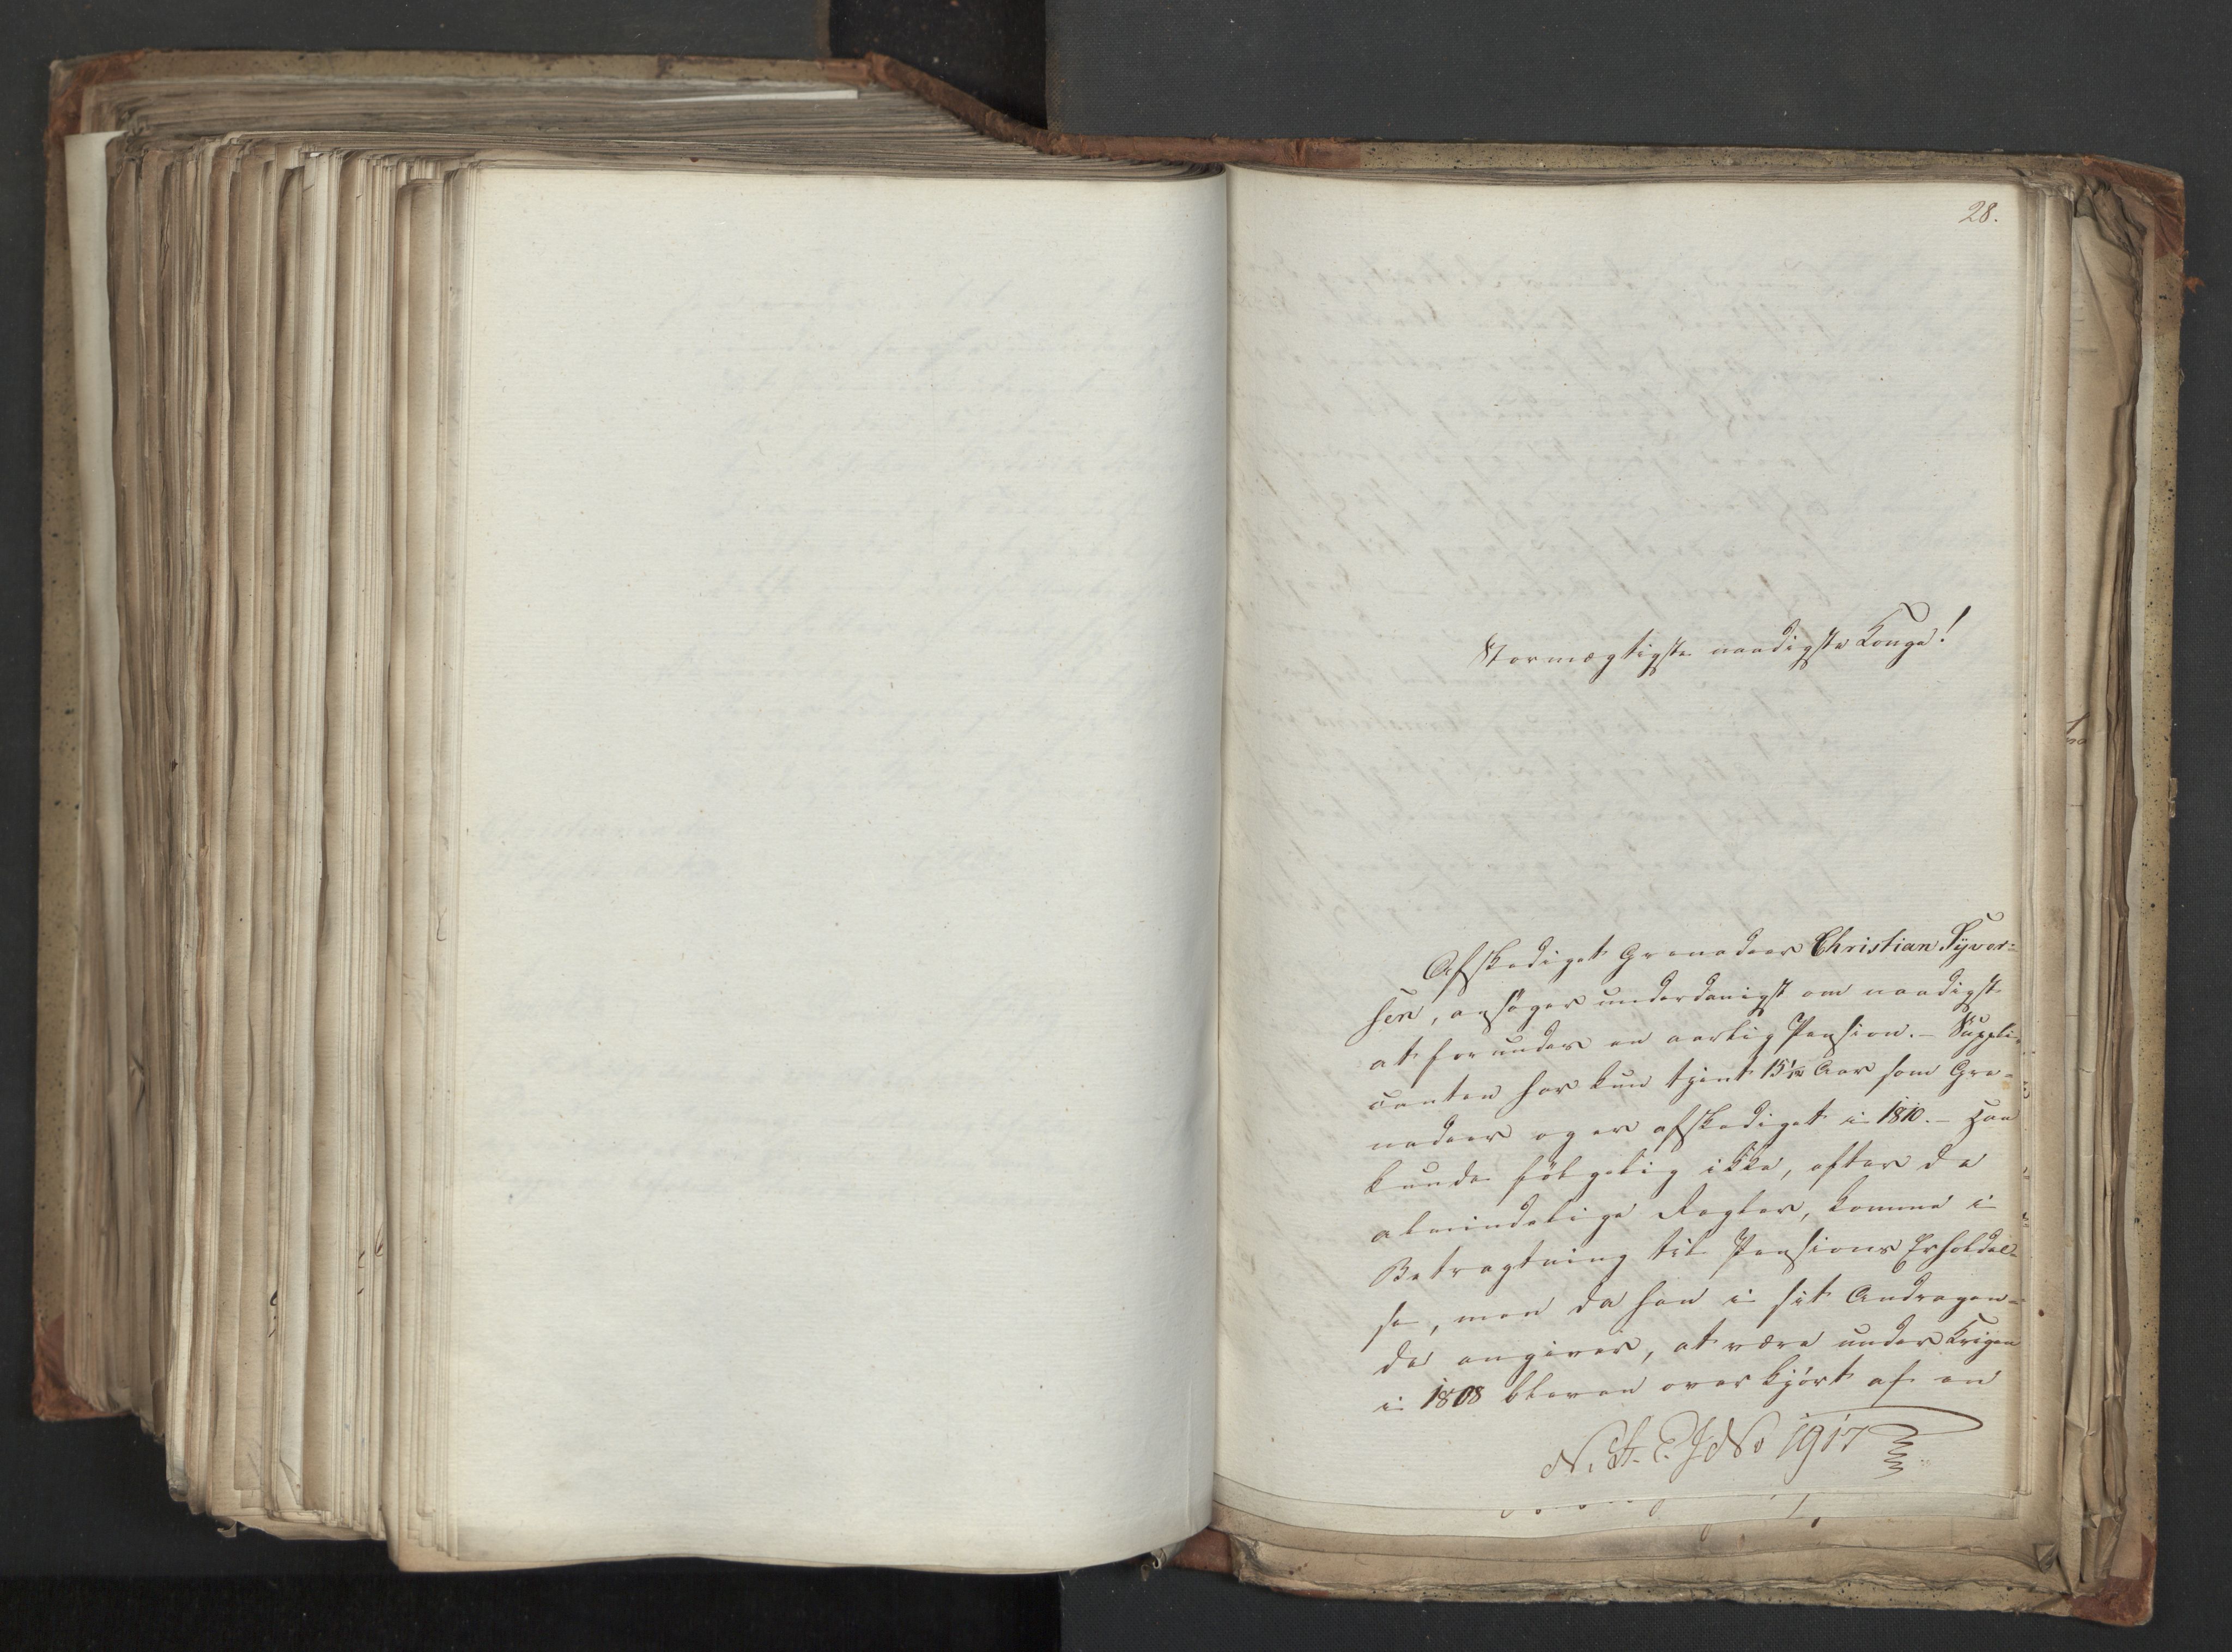 28.
Stormægtigste naadigste Konge!
Afskediget Grenadeer Christian Syver=
sen, ansøger underdanigst om naadigst
at forundes en aarlig Pension. – Suppli=
canten har kun tjent 15 1/12 Aar som Gre=
nadeer og er afskediget i 1810. – Han
kunde følgelig ikke, efter de
almindelige Regler, komme i
Betragtning til Pensions Erholdel=
se, men da han i sit Andragen=
de angiver, at være under Krigen
i 1808 bleven overkjørt af en